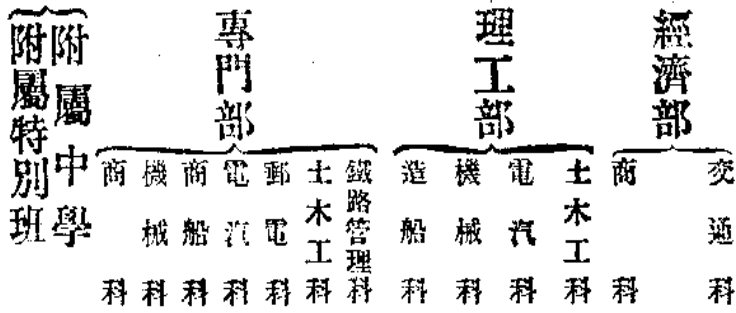 經濟部
交通科
商科
理工部
土木工科
電汽科
機械科
造船科
專門部
鐵路管理科
土木工科
郵電科
電汽科
商船科
機械科
商科
附屬中學
附屬特別班